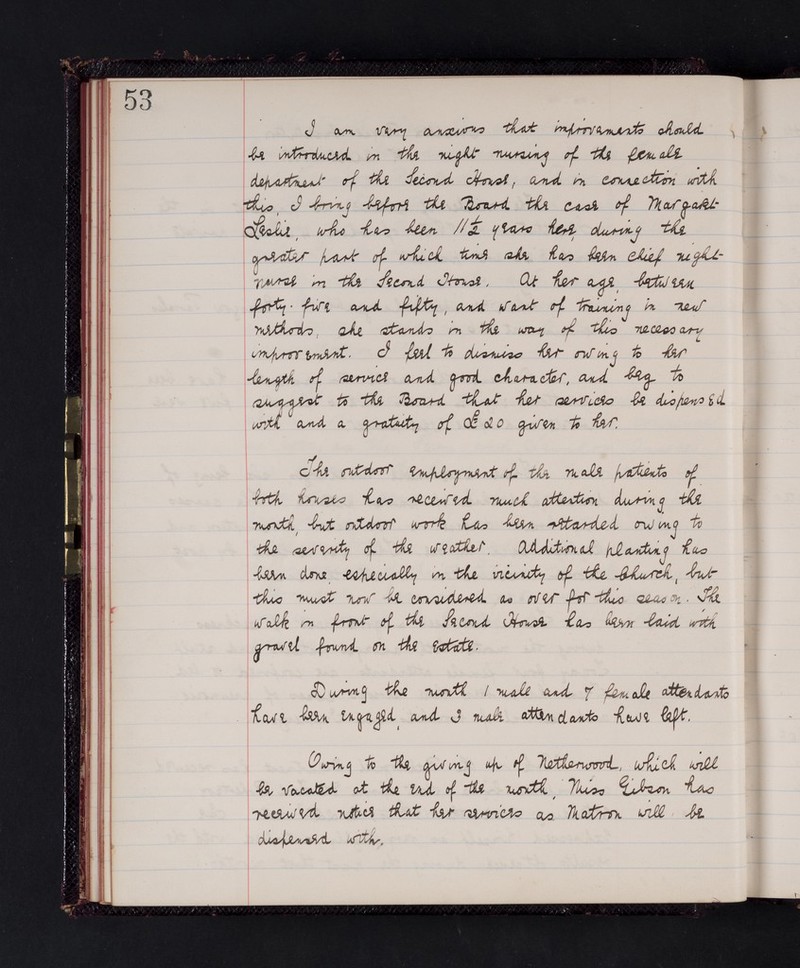 53
I am very anxious that improvements should
be introduced in the night nursing of the female
department of the Second House, and in connection with
this, I bring before the Board the case of Margaret
Leslie, who has been 11½ years here, during the
greater part of which time she has been chief night-
nurse in the Second House. At her age, between
forty-five and fifty, and want of training in new
methods, she stands in the way of this necessary
improvement. I feel to dismiss her owing to her
length of service and good character, and beg to
suggest to the Board that her services be dispensed
with and a gratuity of £20 given to her.
The outdoor employment of the male patients of
both houses has received much attention during the
month, but outdoor work has been retarded owing to
the severity of the weather. Additional planting has
been done, especially in the vicinity of the Church, but
this must now be considered as over for this season. The
walk in front of the Second House has been laid with
gravel found on the estate.
During the month 1 male and 7 female attendants
have been engaged, and 3 male attendants have left.
Owing to the giving up of Netherwood, which will
be vacated at the end of the month, Miss Gibson has
received notice that her services as Matron will be
dispensed with.